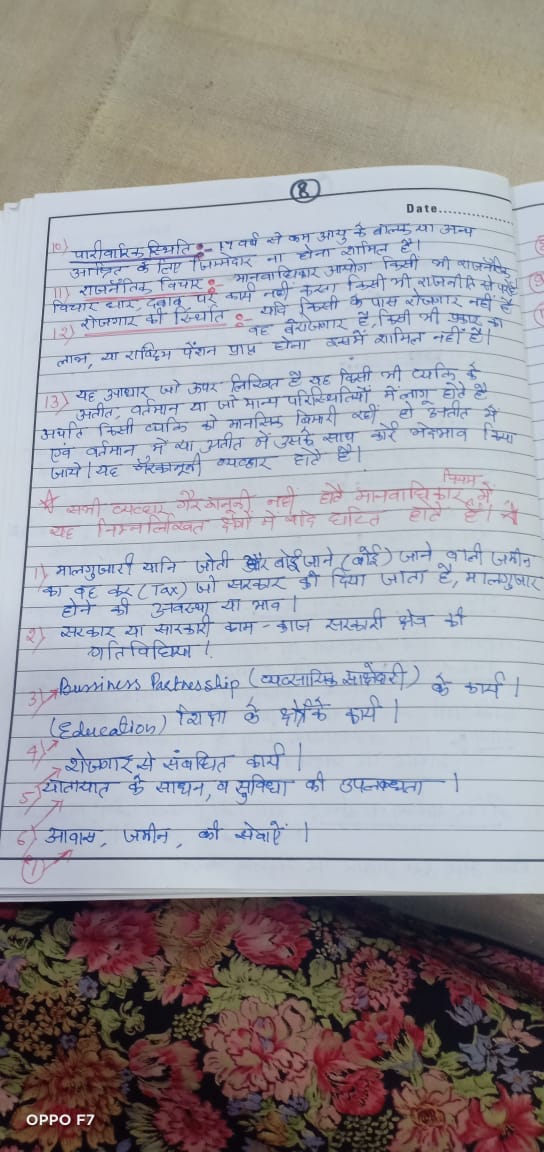 8
Date
10) पारीवारिक स्थिति :- 17 वर्ष से कम आयु के बालक या अन्य
आश्रित के लिए जिम्मेदार ना होना शामिल है।
11) राजनैतिक विचार : मानवाधिकार आयोग किसी भी राजनैतिक
विचार धारा, दबाव पर कार्य नहीं करता किसी भी राजनीति से परे है
12) रोजगार की स्थिति : यदि किसी के पास रोजगार नहीं है
वह बेरोजगार है, किसी भी प्रकार का
लाभ, या राष्ट्रिय पेंशन प्राप्त होना इसमें शामिल नहीं है।
13) यह आधार जो ऊपर लिखित है यह किसी भी व्यक्ति के
अतीत, वर्तमान या जो मान्य परिस्थितियों में लागू होते है
अर्थात किसी व्यक्ति को मानसिक बिमारी रही हो अतीत में
एवं वर्तमान में या अतीत में उसके साथ कोई भेदभाव किया
जाये। यह गैरकानूनी व्यवहार होते है।
नियम
सभी व्यवहार गैर कानूनी नही होते मानवाधिकार में
यह निम्नलिखित क्षेत्रों में यदि घटित होते है।
1) मालगुजारी यानि जोती और बोई जाने (बोई) जाने वाली जमीन
का वह कर (Tax) जो सरकार को दिया जाता है, मालगुजार
होने की अवस्था या भाव।
2) सरकार या सरकारी काम-काज सरकारी क्षेत्र की
गतिविधियां।
3) Bussiness Partnership (व्यवसायिक साझेदारी) के कार्य।
(Education) शिक्षा के क्षेत्र के कार्य।
4)
रोजगार से संबंधित कार्य।
5) यातायात के साधन, व सुविधा की उपलब्धता।
6) आवास, जमीन, की सेवाएं।
7)
OPPO F7